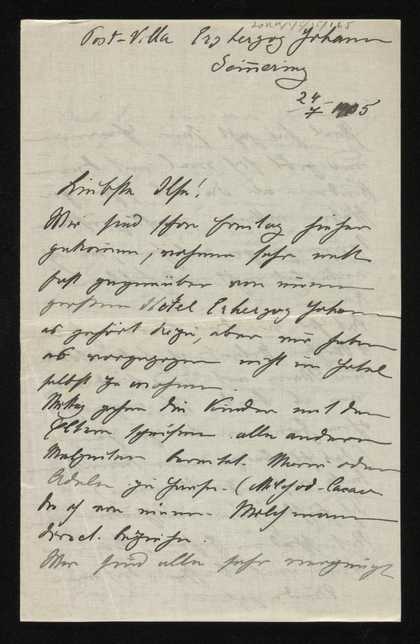 Post-Villa Erzherzog Johann
Semmering
24/7 1905
Liebste Ilse!
Wir sind schon Freitag hieher
gekommen, wohnen sehr nett
fast gegenüber von einem
grossen Hotel Erzherzog Johann
es gehört dazu, aber wir haben
es vorgezogen nicht im Hotel
selbst zu wohnen.
Mittag gehen die Kinder mit den
Eltern speisen alle anderen
Mahlzeiten bereitet Marie oder
Adele zu Hause. (Milch od. Cacao
die ich von einem Milchmann
direct beziehe.
Wir sind alle sehr vergnügt